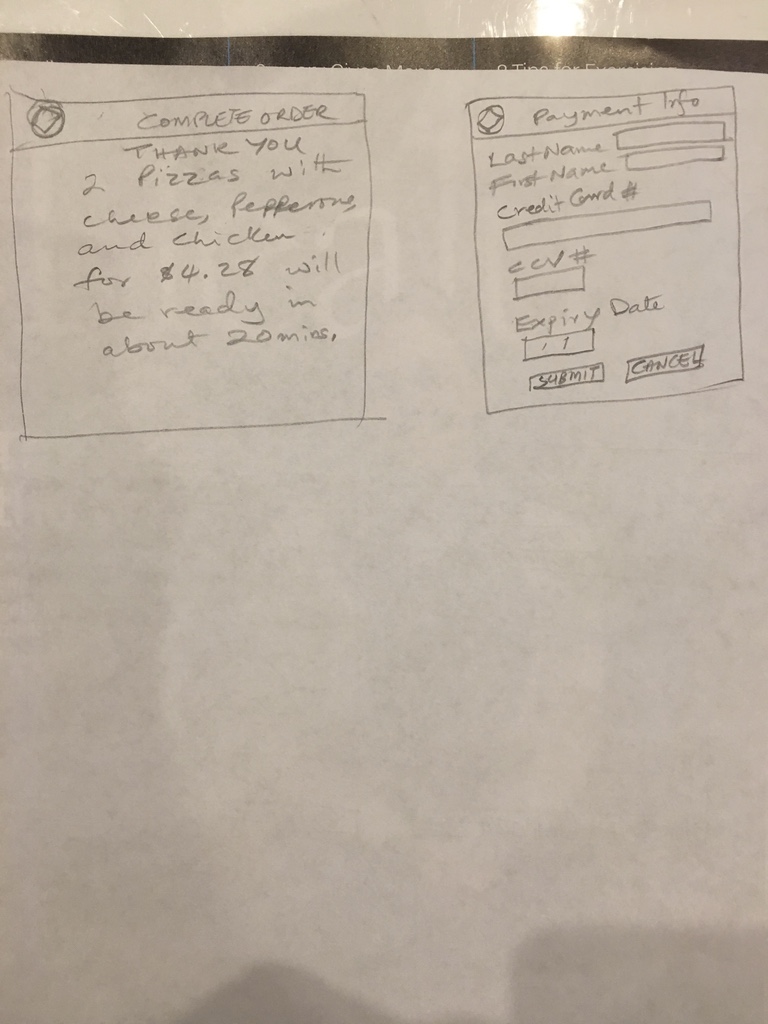 COMPLETE ORDER
THANK YOU
2 Pizzas with
cheese, Pepperoni,
and chicken.
for $4.28 will
be ready in
about 20 mins.
Payment Info
Last Name
First Name
Credit Card #
CCV #
Expiry Date
/ /
SUBMIT CANCEL